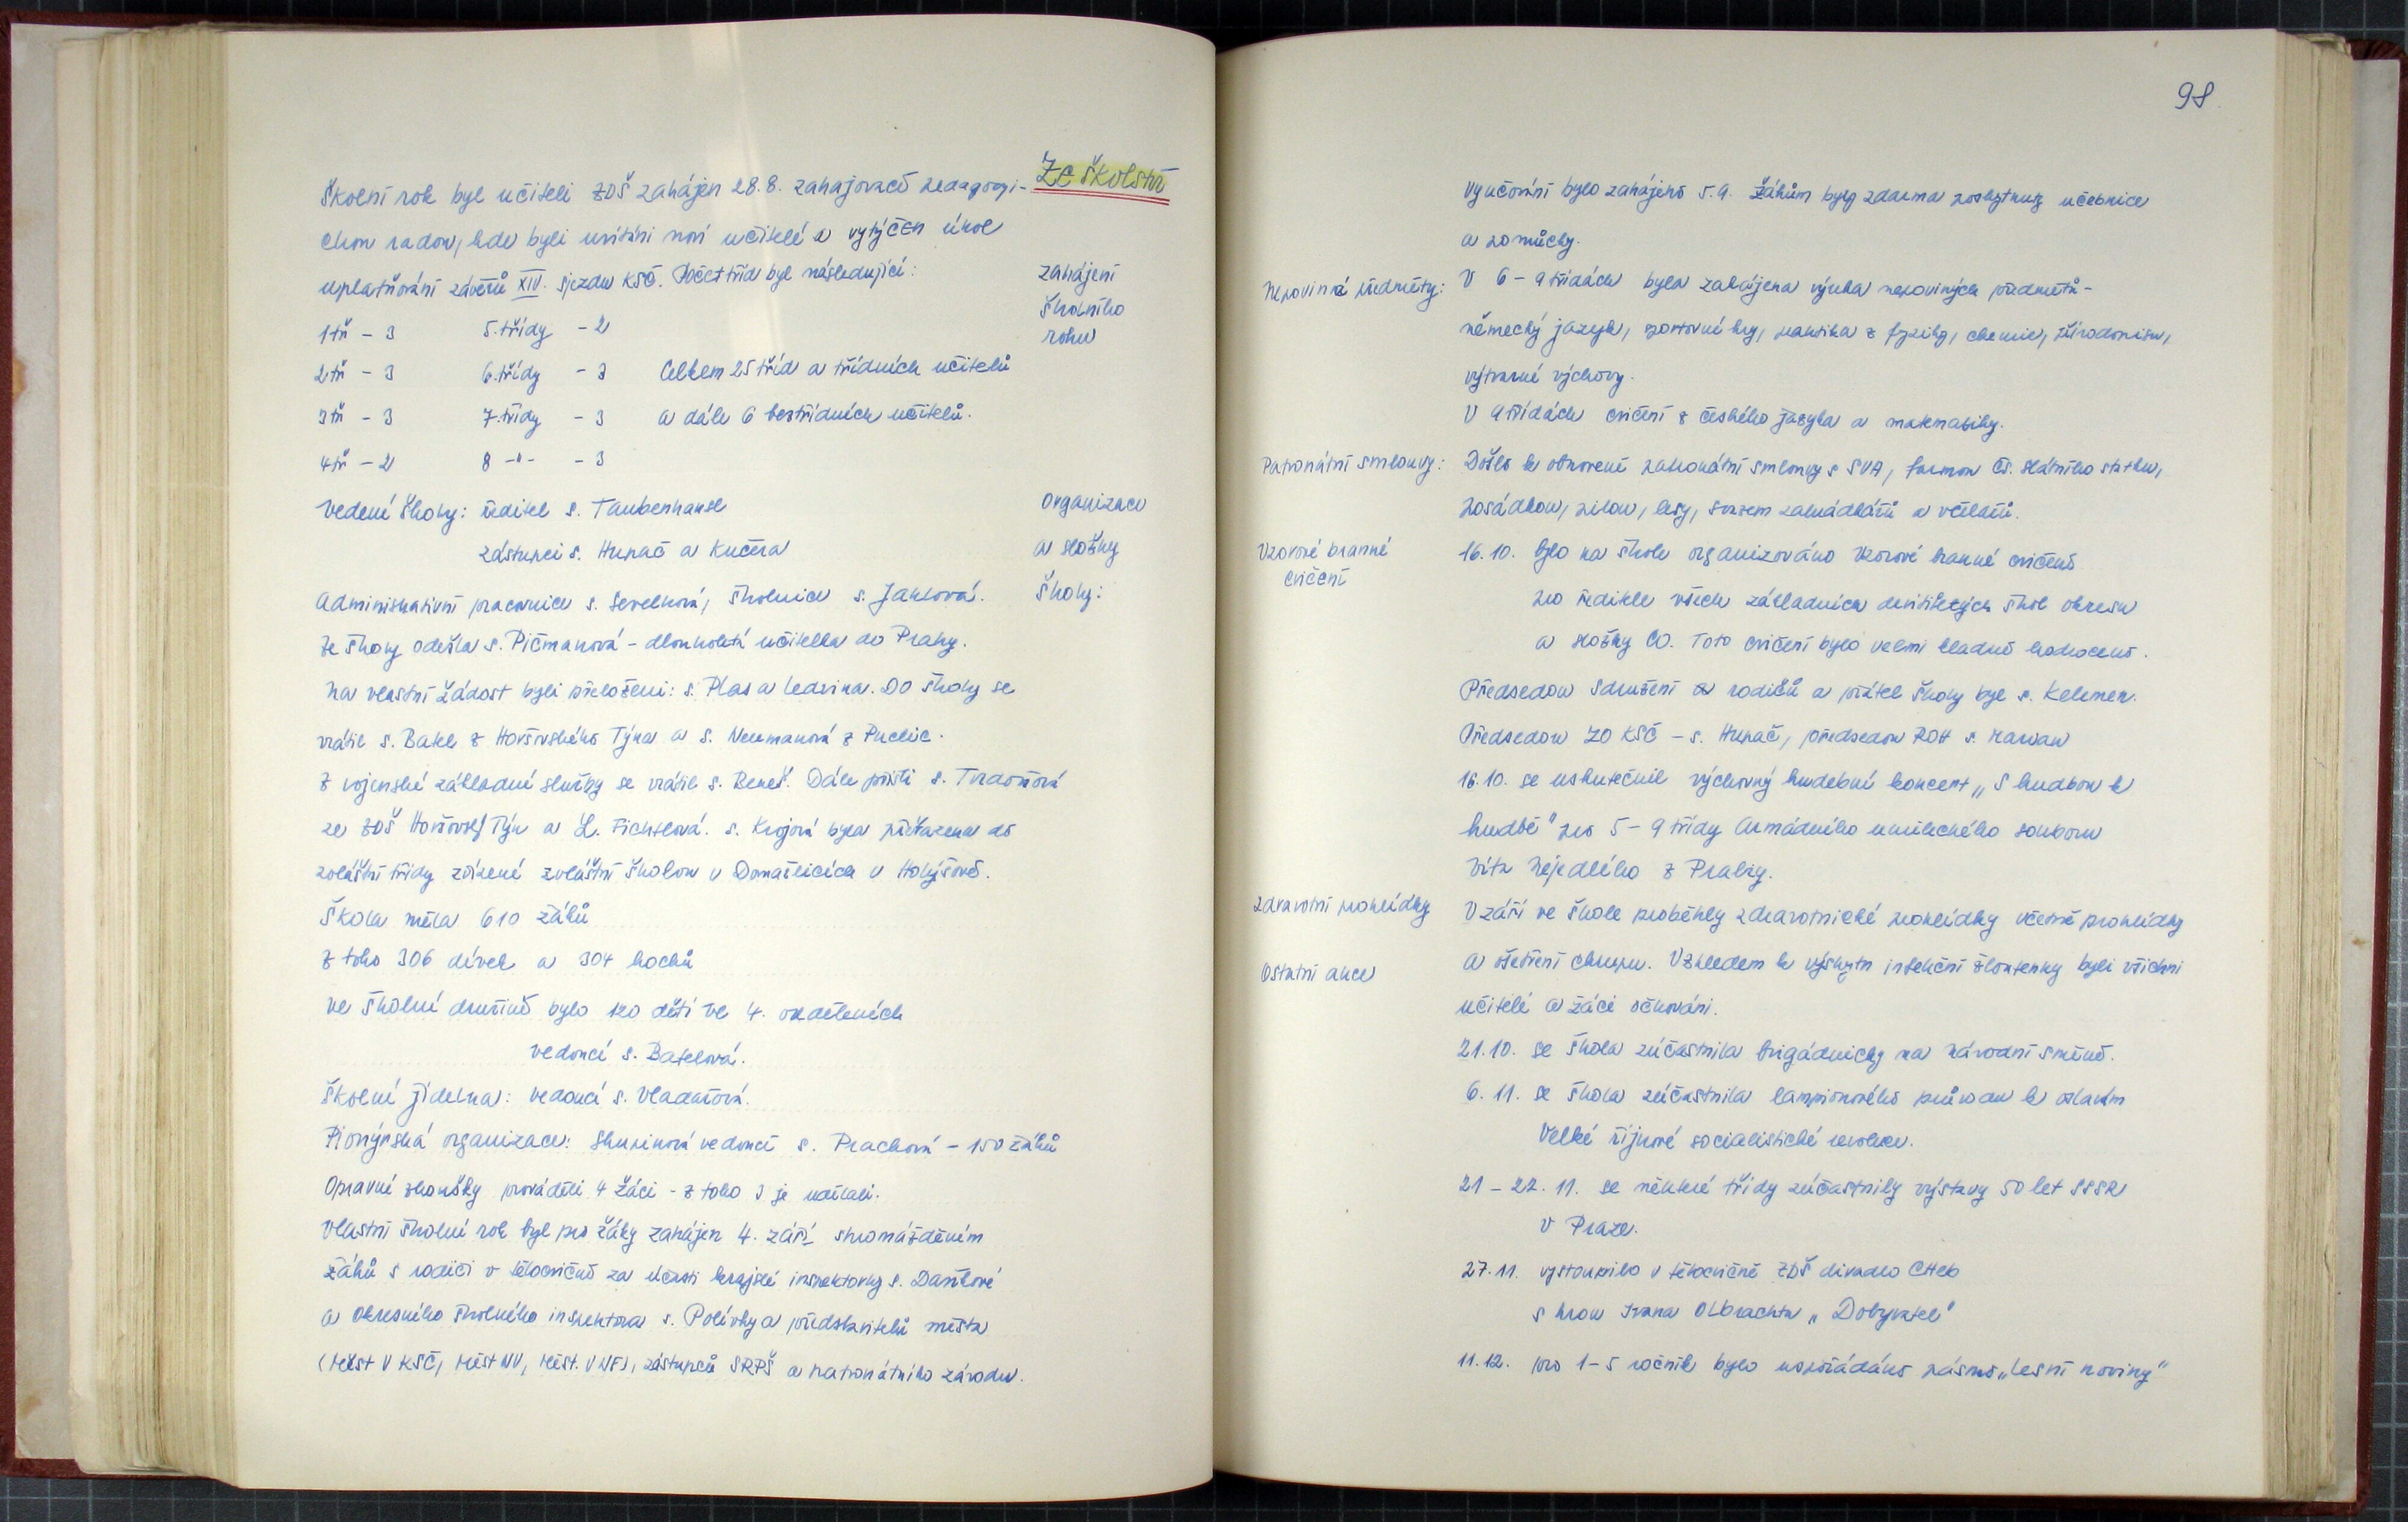 Ze školství
Školní rok byl učiteli ZDŠ zahájen 28.8. zahajovací pedagogi-
ckou radou, kde byli uvítáni noví učitelé a vytýčen úkol
uplatňování závěrů XIV. sjezdu KSČ. Počet tříd byl následující:
zahájení
školního
roku
1tř - 3 5.třídy - 2
2tř - 3 6.třídy - 3 Celkem 25 tříd a třídních učitelů
3tř - 3 7.třídy - 3 a dále 6 beztřídních učitelů.
4tř - 2 8 -"- - 3
Vedení školy: ředitel s. Taubenhansl
zástupci s. Hupač a Kučera
Organizace
a složky
školy:
Administrativní pracovnice s. školnice s. Jahlová.
Ze školy odešla s. Pičmanová - dlouholetá učitelka do Prahy.
Na vlastní žádost byli přeloženi: s. Plas a Ledvina. Do školy se
vrátil s. Bakl z Horšovského Týna a s. Neumanová z Puclic.
Z vojenské základní služby se vrátil s. Beneš. Dále přišli s.
ze ZDŠ Horšovský Týn a L. Fichtlová. s. Krojová byla přiřazena do
zvláštní třídy zřízené zvláštní školou v Domažlicích v Holýšově.
Škola měla 610 žáků
z toho 306 dívek a 304 hochů
ve školní družině bylo 120 dětí ve 4. odděleních
vedoucí s. Batelová.
Školní jídelna: vedoucí s. Vladařová.
Pionýrská organizace: skupinová vedoucí s. Prachová - 150 žáků
Opravné zkoušky prováděli 4 žáci - z toho 3 je udělali.
Vlastní školní rok byl pro žáky zahájen 4. září shromážděním
žáků s rodiči v tělocvičně za účasti krajské inspektorky s. Daníčkové
a okresního školního inspektora s. Polívky a představitelů města
(Měst V KSČ, Měst NV, Měst. V NF), zástupců SRPŠ a patronátního závodu.
98.
Vyučování bylo zahájeno 5.9. Žákům byly zdarma poskytnuty učebnice
a pomůcky.
Nepovinné předměty:
V 6 - 9 třídách byla zahájena výuka nepoviných předmětů -
německý jazyk, sportovní hry, praktika z fyziky, chemie, přírodopisu,
výtvarné výchovy.
V 9 třídách cvičení z českého jazyka a matematiky.
Patronátní smlouvy:
Došlo k obnovení patronátní smlouvy s SVA, farmou čs. státního statku,
posádkou, pilou, lesy, svazem zahrádkářů a včelařů.
Vzorové branné
cvičení
16.10. bylo na škole organizováno vzorové branné cvičení
pro ředitele všech základních devítiletých škol okresu
a složky CO. Toto cvičení bylo velmi kladně hodnoceno.
Předsedou Sdružení rodičů a přátel školy byl s. Kelemen.
Předsedou ZO KSČ - s. Hupač, předsedou ROH s.
16.10. se uskutečnil výchovný hudební koncert „S hudbou k
hudbě" pro 5 - 9 třídy Armádního uměleckého souboru
Víta Nejedlého z Prahy.
Zdravotní prohlídky
V září ve škole proběhly zdravotnické prohlídky včetně prohlídky
a ošetření chrupu. Vzhledem k výskytu infekční žloutenky byli všichni
Ostatní akce
učitelé a žáci očkováni.
21.10. se škola zúčastnila brigádnicky na Národní směně.
6. 11. se škola zúčastnila lampionového průvodu k oslavám
Velké říjnové socialistické revoluce.
21 - 22. 11. se některé třídy zúčastnily výstavy 50 let SSSR
v Praze.
27.11. vystoupilo v tělocvičně ZDŠ divadlo Cheb
s hrou Ivana Olbrachta „Dobyvatel"
11.12. pro 1 - 5 ročník bylo uspořádáno pásmo „Lesní noviny"